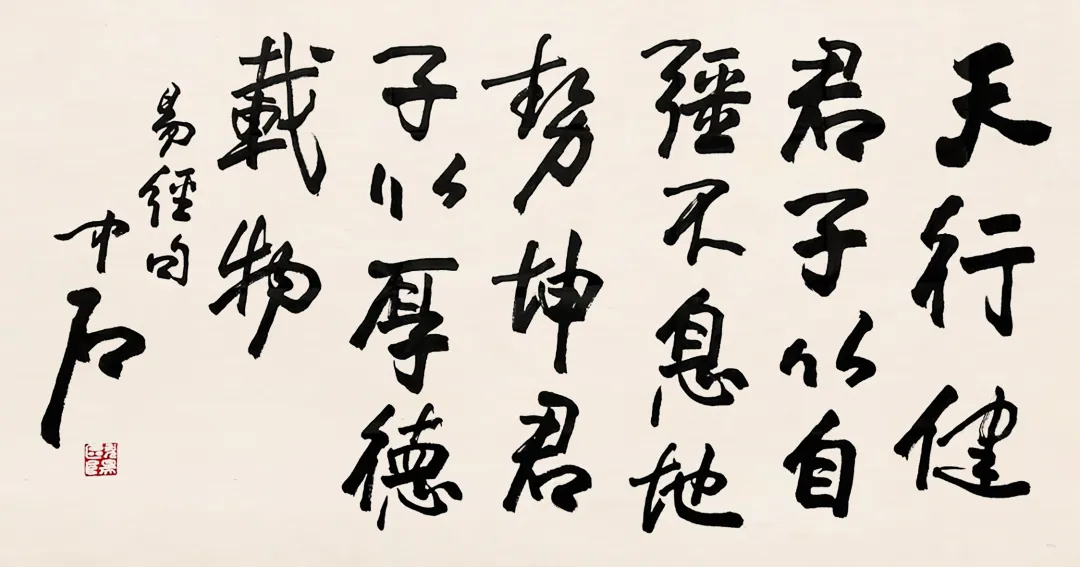 天行健
君子以自
彊不息地
勢坤君
子以厚德
載物
易經句
中石